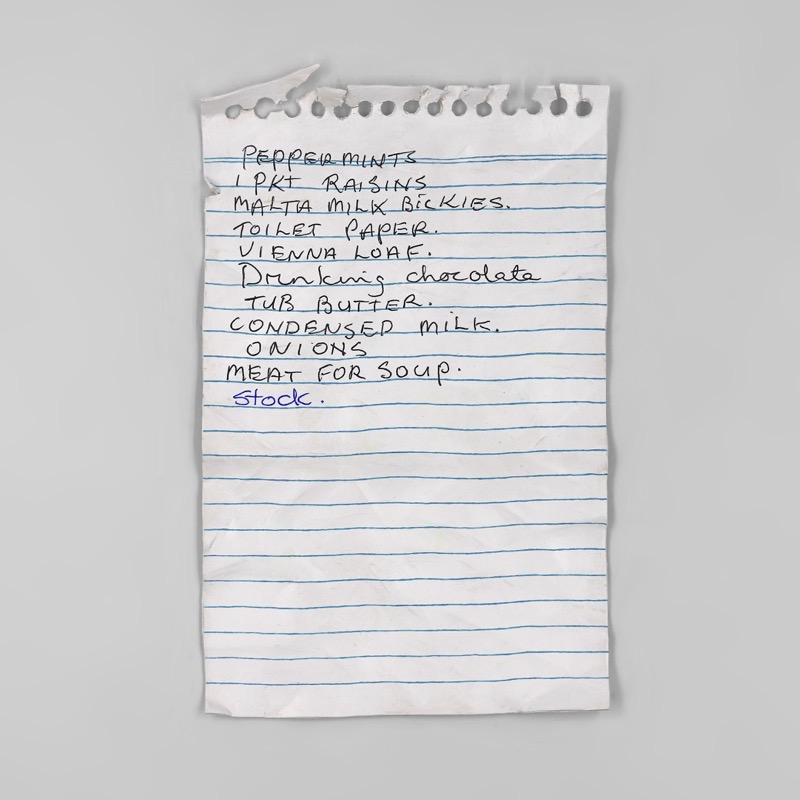 PEPPERMINTS
1 PKT RAISINS
MALTA MILK BICKIES.
TOILET PAPER.
VIENNA LOAF.
Drinking chocolate
TUB BUTTER.
CONDENSED MILK.
ONIONS
MEAT FOR SOUP.
Stock.